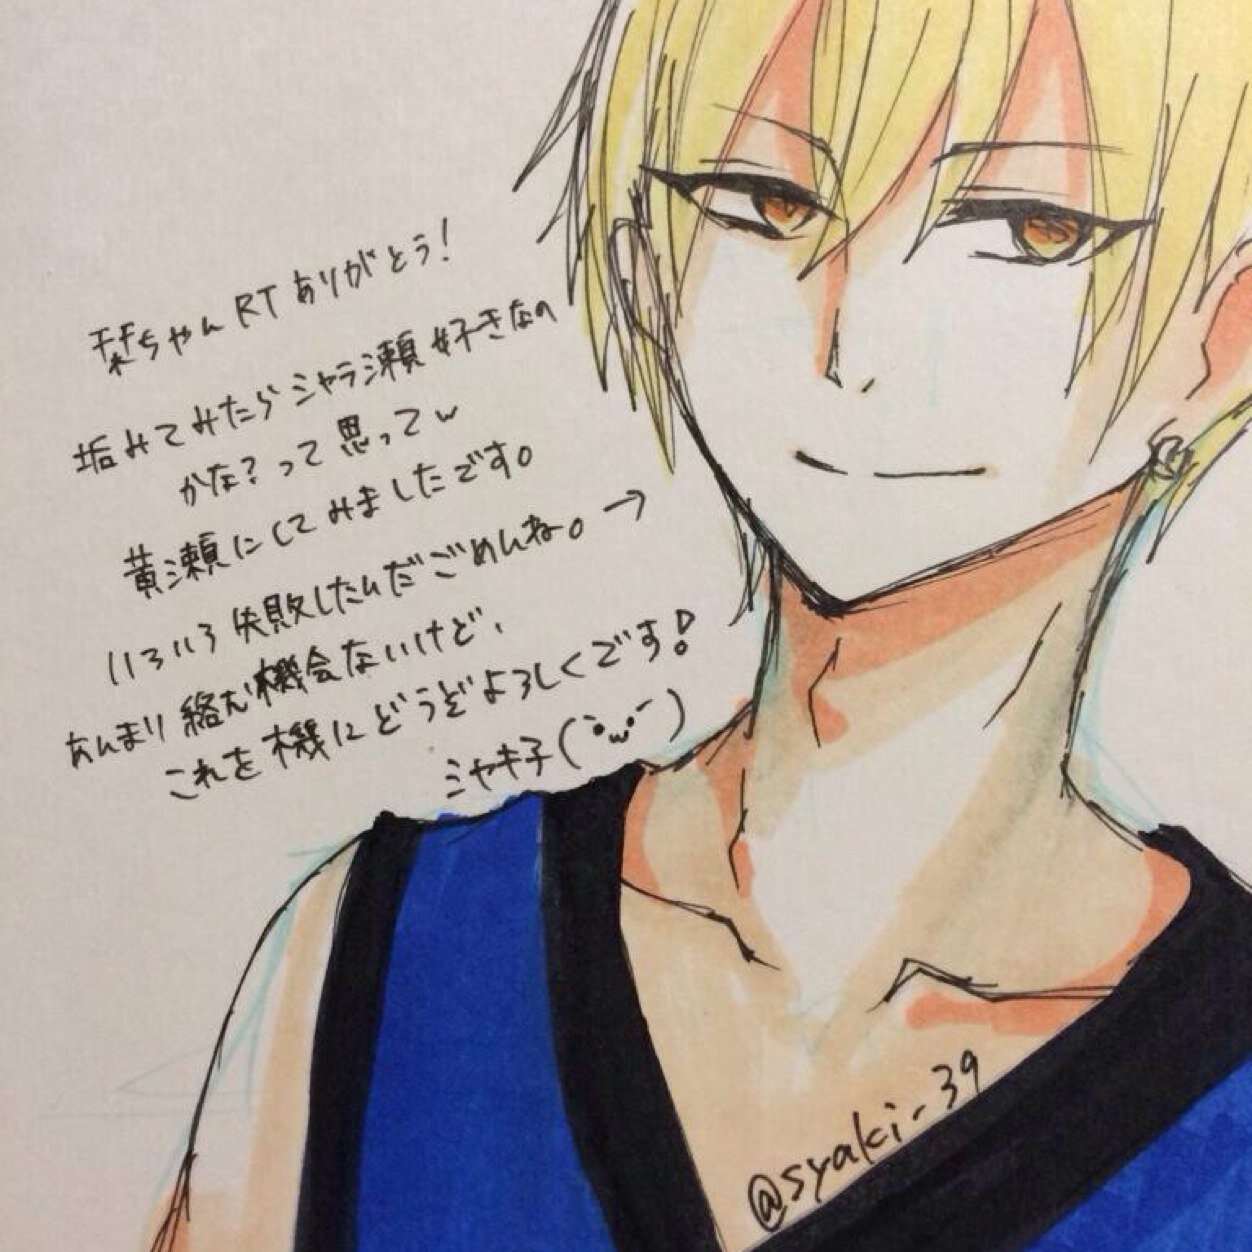 栞ちゃん RT ありがとう!
垢みてみたらシャラ瀬好きなの
かな?って思ってw
黄瀬にしてみましたです。
いろいろ失敗したんだごめんね。→
あんまり絡む機会ないけど、
これを機にどうぞよろしくです!
シャキ子(´・ω・`)
@syaki_39